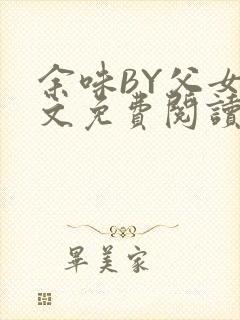 余味BY父女
文免费閱讀
畢美家